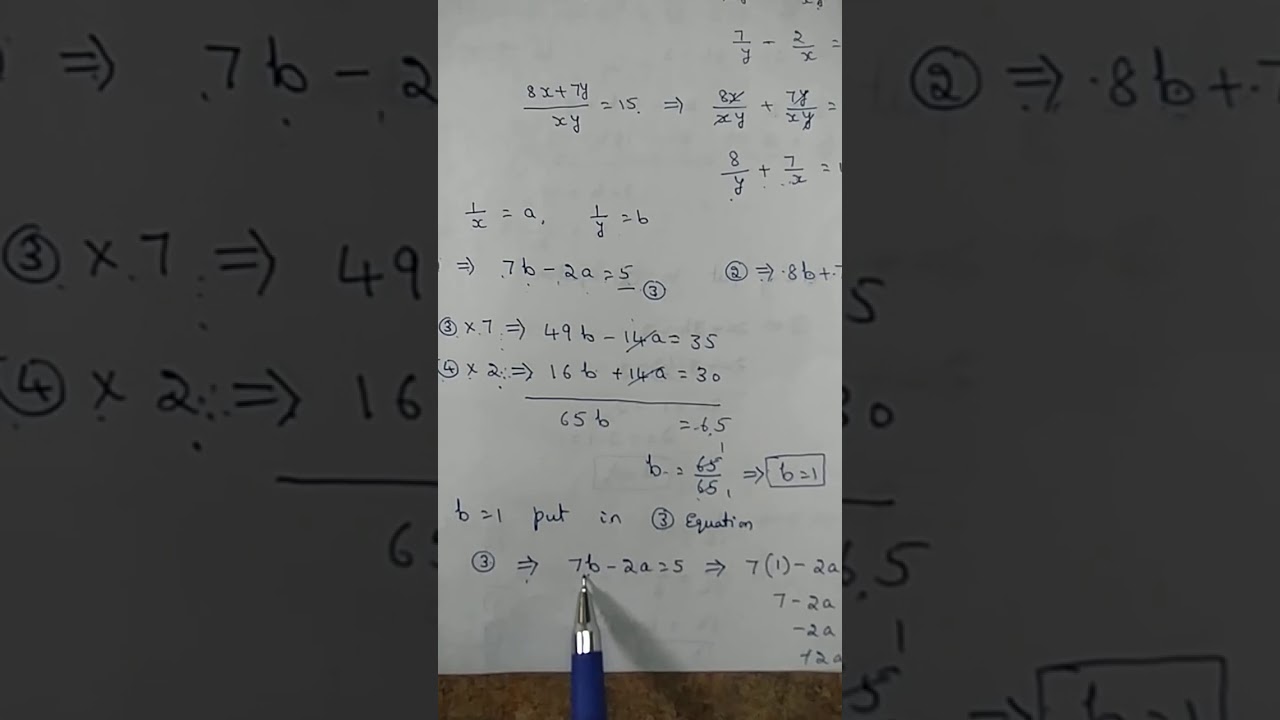 7/y - 2/x =
(8x+7y)/xy = 15 ⇒ 8x/xy + 7y/xy =
8/y + 7/x =
1/x = a, 1/y = b
⇒ 7b - 2a = 5 ③ ② ⇒ 8b + 7
③ × 7 ⇒ 49b - 14a = 35
④ × 2 ⇒ 16b + 14a = 30
65b = 65
b = 65/65 ⇒ b=1
b=1 put in ③ Equation
③ ⇒ 7b - 2a = 5 ⇒ 7(1) - 2a
7 - 2a
-2a
+2a